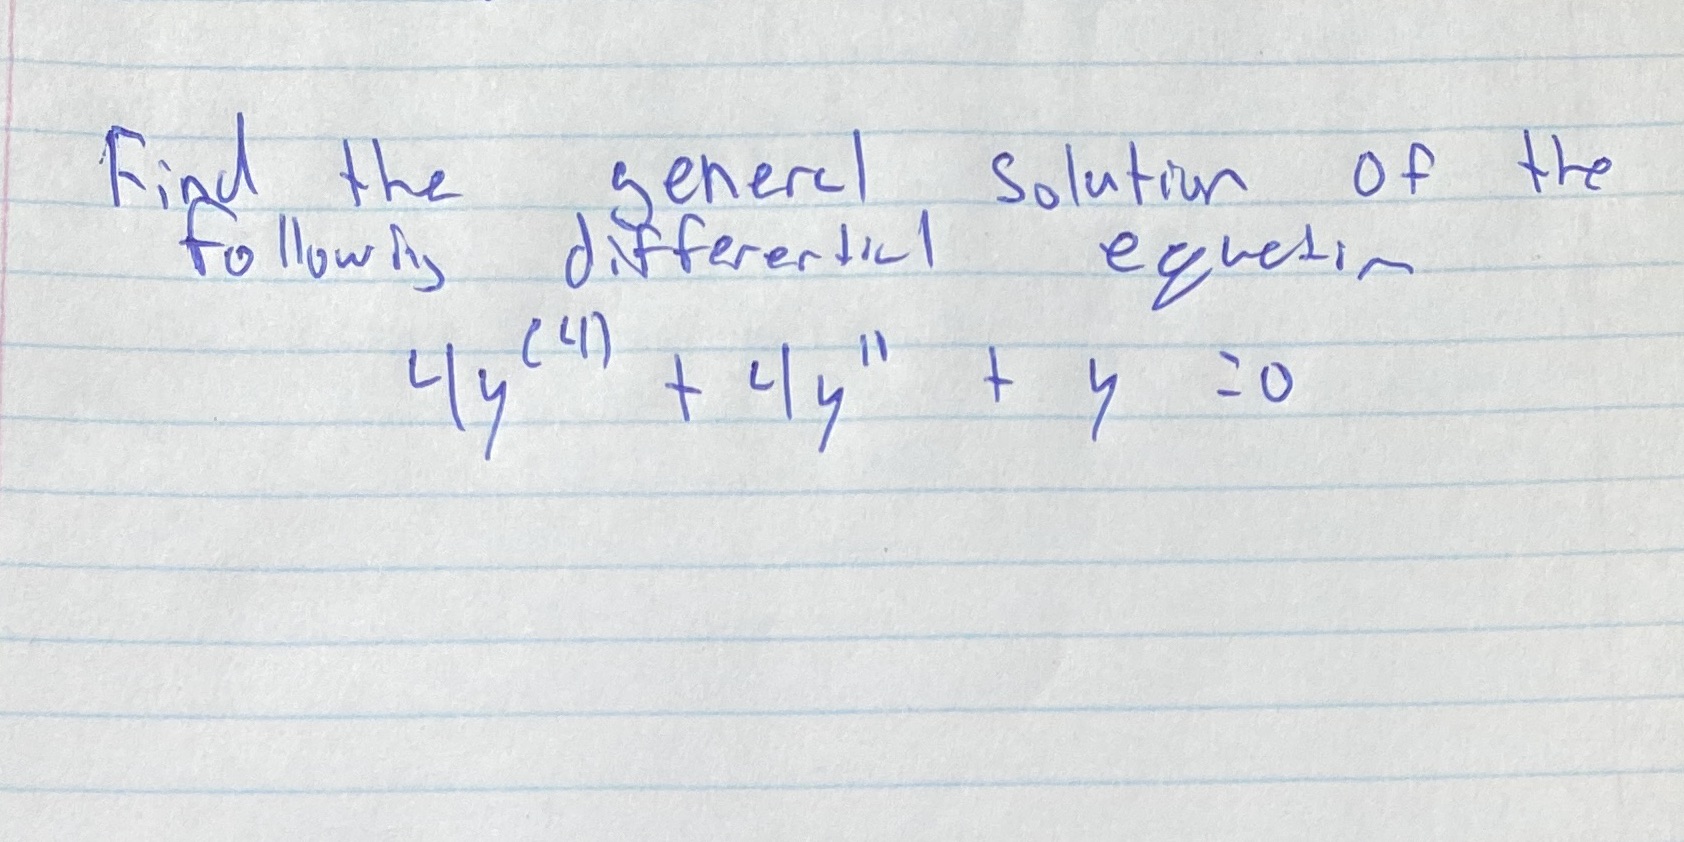 Find the general solution of the
following differential equation
4y⁽⁴⁾ + 4y'' + y = 0